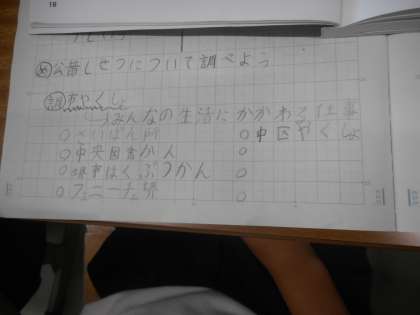 18
め 公昔しせつについて調べよう
市やくしょ
みんなの生活にかかわる仕事
○さいばん所 ○中区やくしょ
○中央図書かん ○
○堺市はくぶつかん ○
○フェニーチェ堺 ○